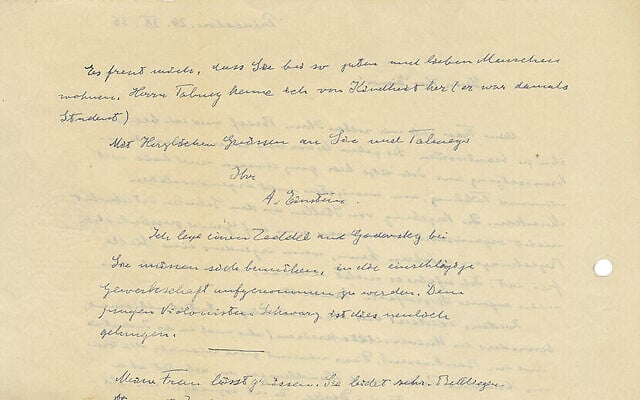 Es freut mich, dass Sie bei so guten und lieben Menschen
wohnen. Herrn Talmey kenne ich von Kindheit her (er war damals
Student)
Mit Herzlichen Grüssen an Sie und Talmeys
Ihr
A. Einstein.
Ich lege einen Zeddel an Godowsky bei
Sie müssen sich bemühen, in die einschlägige
Gewerkschaft aufgenommen zu werden. Dem
jungen Violinisten Schwarz ist dies neulich
gelungen.
Meine Frau lässt grüssen. Sie leidet sehr.